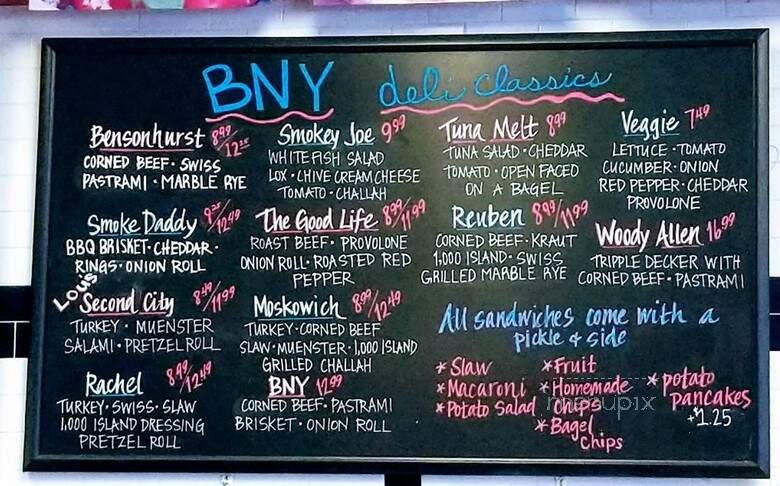 BNY deli classics
Bensonhurst 8.99/12.25
CORNED BEEF · SWISS
PASTRAMI · MARBLE RYE
Smoke Daddy 9.25/12.49
BBQ BRISKET · CHEDDAR ·
RINGS · ONION ROLL
Lou's
Second City 8.49/11.99
TURKEY · MUENSTER
SALAMI · PRETZEL ROLL
Rachel 8.99/12.49
TURKEY · SWISS · SLAW
1,000 ISLAND DRESSING
PRETZEL ROLL
Smokey Joe 9.99
WHITEFISH SALAD
LOX · CHIVE CREAM CHEESE
TOMATO · CHALLAH
The Good Life 8.99/11.99
ROAST BEEF · PROVOLONE
ONION ROLL · ROASTED RED
PEPPER
Moskowich 8.99/12.49
TURKEY · CORNED BEEF
SLAW · MUENSTER · 1,000 ISLAND
GRILLED CHALLAH
BNY 12.99
CORNED BEEF · PASTRAMI
BRISKET · ONION ROLL
Tuna Melt 8.99
TUNA SALAD · CHEDDAR
TOMATO · OPEN FACED
ON A BAGEL
Reuben 8.99/11.99
CORNED BEEF · KRAUT
1,000 ISLAND · SWISS
GRILLED MARBLE RYE
Veggie 7.49
LETTUCE · TOMATO
CUCUMBER · ONION
RED PEPPER · CHEDDAR
PROVOLONE
Woody Allen 16.99
TRIPPLE DECKER WITH
CORNED BEEF · PASTRAMI
All sandwiches come with a
pickle & side
* Slaw
* Macaroni
* Potato Salad
* Fruit
* Homemade
chips
* Bagel
Chips
* potato
pancakes
+$1.25
menupix